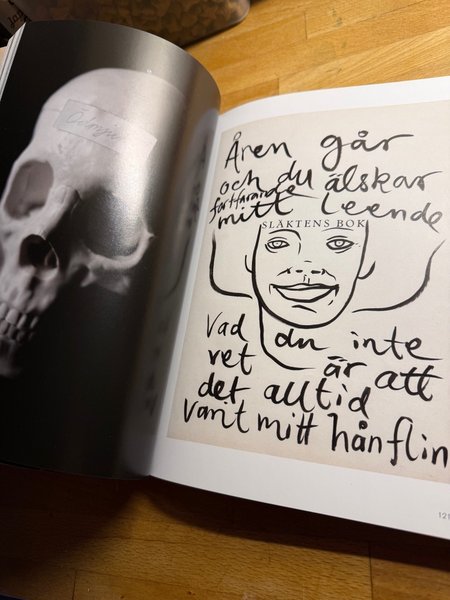 Åren går
och du älskar
fortfarande
mitt leende
SLÄKTENS BOK
Vad du inte
vet är att
det alltid
varit mitt hånflin